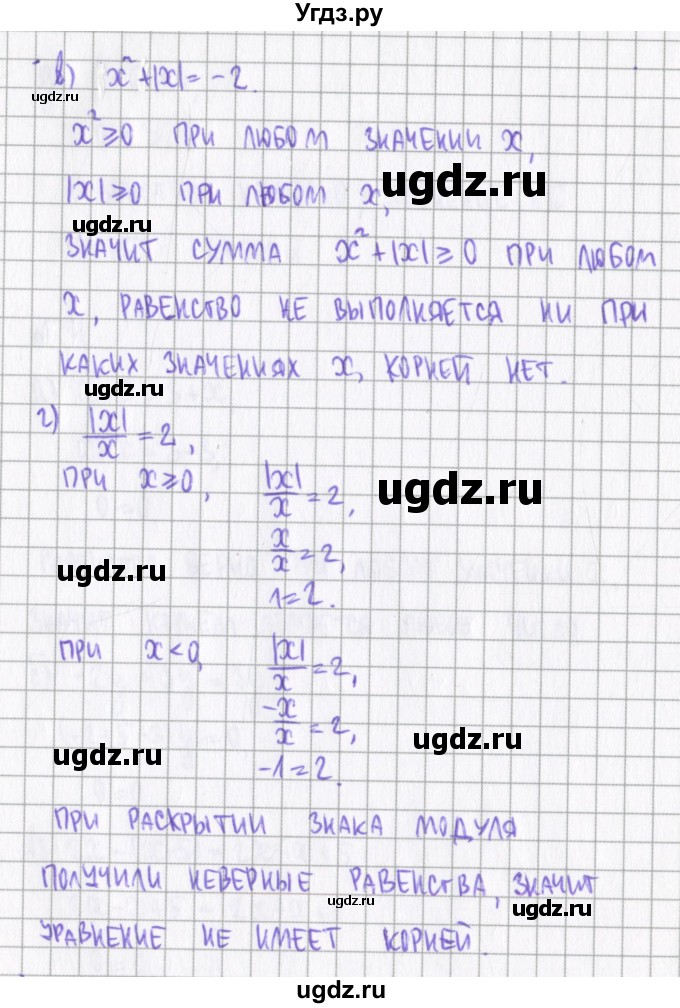 Угдз.ру
в) x² + |x| = -2.
ugdz.ru
x² ≥ 0 ПРИ ЛЮБОМ ЗНАЧЕНИИ x,
ugdz.ru
|x| ≥ 0 ПРИ ЛЮБОМ x,
ugdz.ru
ЗНАЧИТ СУММА x² + |x| ≥ 0 ПРИ ЛЮБОМ
x, РАВЕНСТВО НЕ ВЫПОЛНЯЕТСЯ НИ ПРИ
КАКИХ ЗНАЧЕНИЯХ x, КОРНЕЙ НЕТ.
ugdz.ru
г) |x|/x = 2,
ПРИ x ≥ 0, |x|/x = 2,
ugdz.ru
x/x = 2,
ugdz.ru
1 = 2.
ПРИ x < 0, |x|/x = 2,
-x/x = 2,
ugdz.ru
ugdz.ru
-1 = 2.
ПРИ РАСКРЫТИИ ЗНАКА МОДУЛЯ
ПОЛУЧИЛИ НЕВЕРНЫЕ РАВЕНСТВА, ЗНАЧИТ
ugdz.ru
ugdz.ru
УРАВНЕНИЕ НЕ ИМЕЕТ КОРНЕЙ.
ugdz.ru